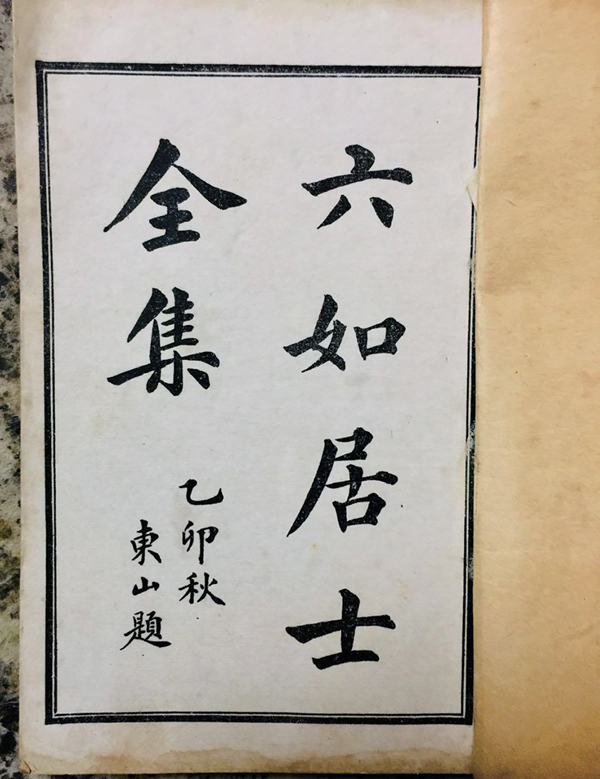 六如居士
全集
乙卯秋
東山題